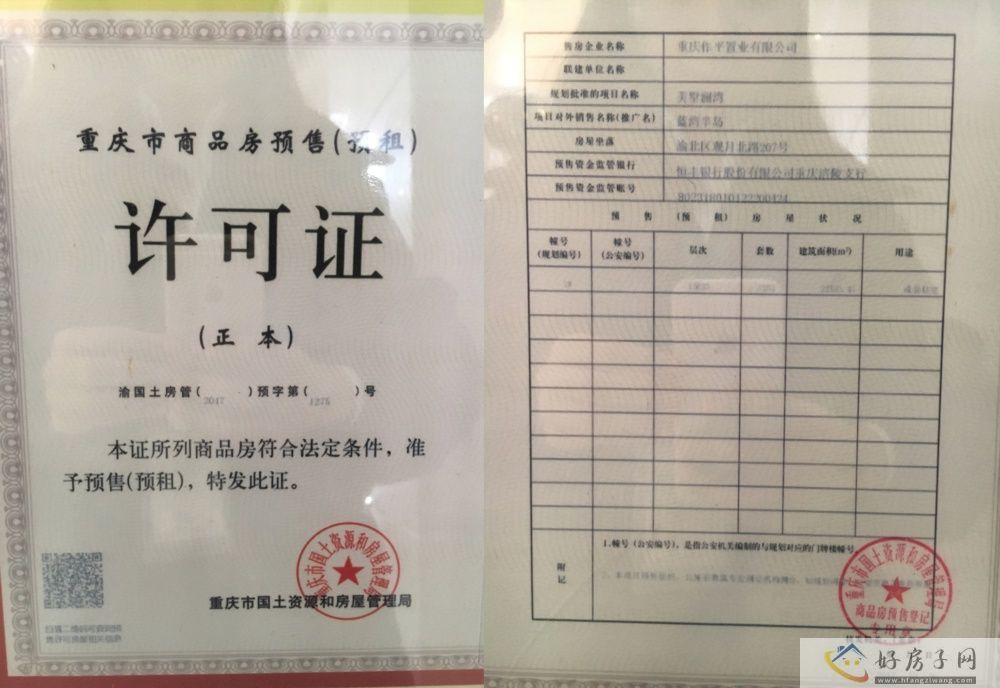 重庆市商品房预售(预租)
许可证
(正 本)
渝国土房管( 2017 )预字第( 1275 )号
本证所列商品房符合法定条件，准
予预售(预租)，特发此证。
重庆市国土资源和房屋管理局
重庆市国土资源和房屋管理局
扫描二维码可查询预
售许可房屋相关信息
售房企业名称 重庆作平置业有限公司
联建单位名称
规划批准的项目名称 美墅澜湾
项目对外销售名称(推广名) 蓝湾半岛
房屋坐落 渝北区观月北路207号
预售资金监管银行 恒丰银行股份有限公司重庆涪陵支行
预售资金监管账号
预 售 (预 租) 房 屋 状 况
幢号 幢号 层次 套数 建筑面积(m²) 用途
(规划编号) (公安编号)
附记
1.幢号（公安编号），是指公安机关编制的与规划对应的门牌楼幢号。
重庆市国土资源和房屋管理局
商品房预售登记
专用章
好房子网
www.hfangziwang.com